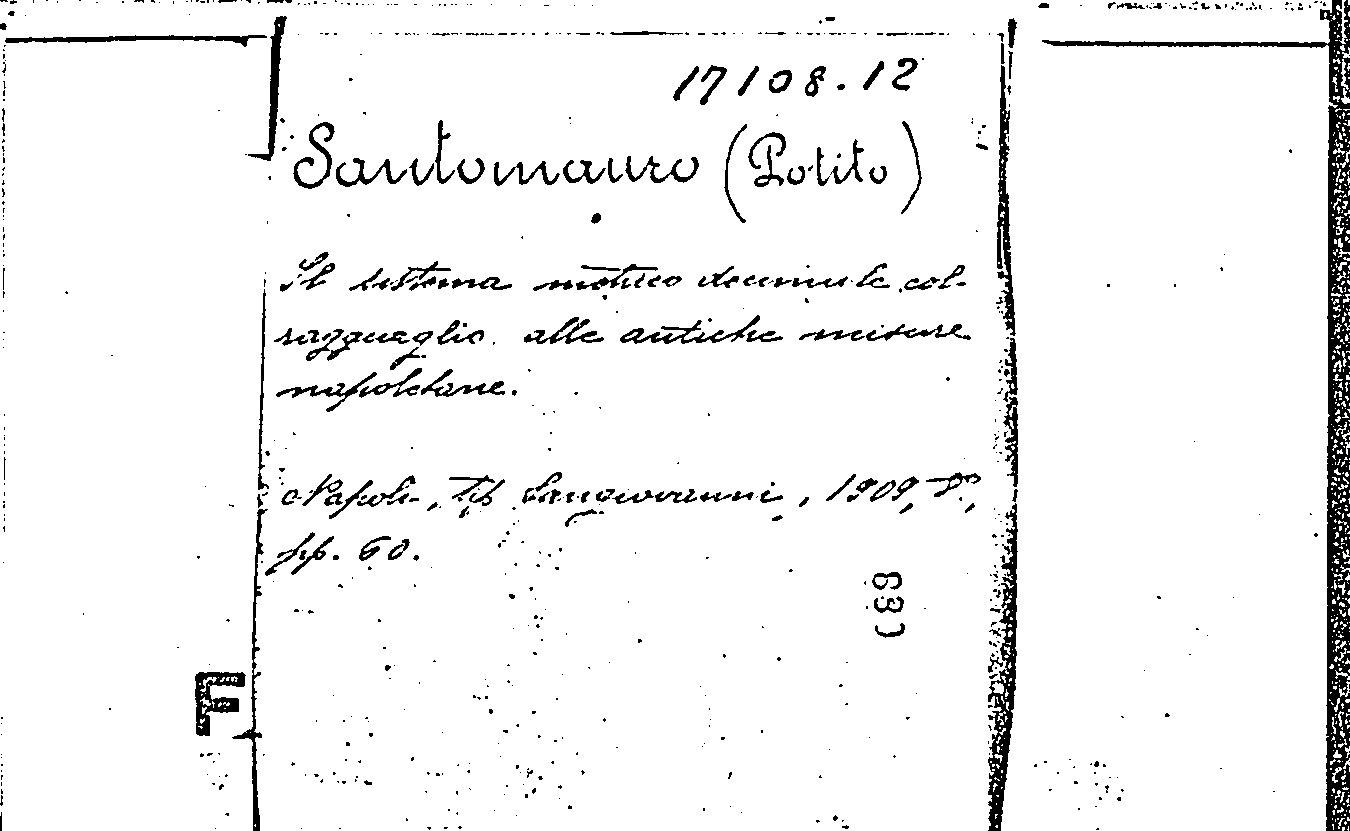 17108.12
Santomauro (Potito)
Il sistema metrico decimale col
ragguaglio alle antiche misure
napoletane.
Napoli, Tip Sangiovanni, 1909, 8°,
pp. 60.
F